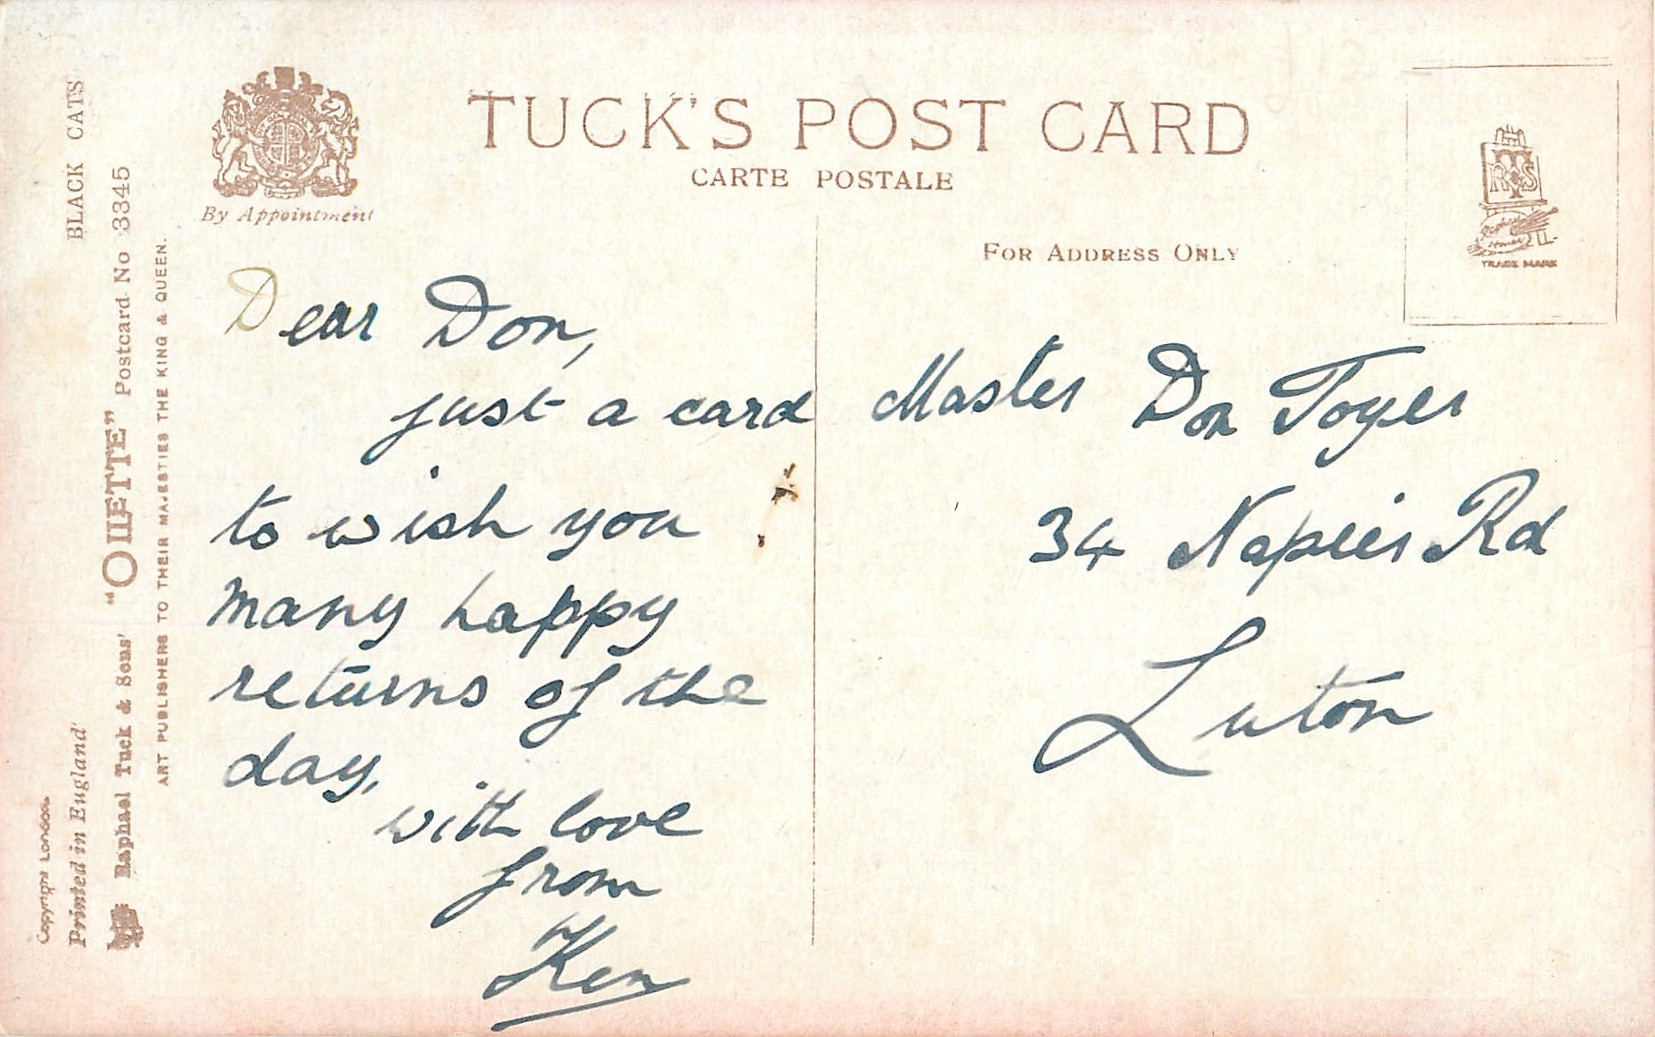 TUCK'S POST CARD
CARTE POSTALE
By Appointment
FOR ADDRESS ONLY
TRADE MARK
BLACK CATS
Raphael Tuck & Sons' "OILETTE" Postcard No 3345
ART PUBLISHERS TO THEIR MAJESTIES THE KING & QUEEN.
Printed in England
Copyright London
Dear Don,
just a card
to wish you
many happy
returns of the
day,
with love
from
Ken
Master Don Toyer
34 Napier Rd
Luton